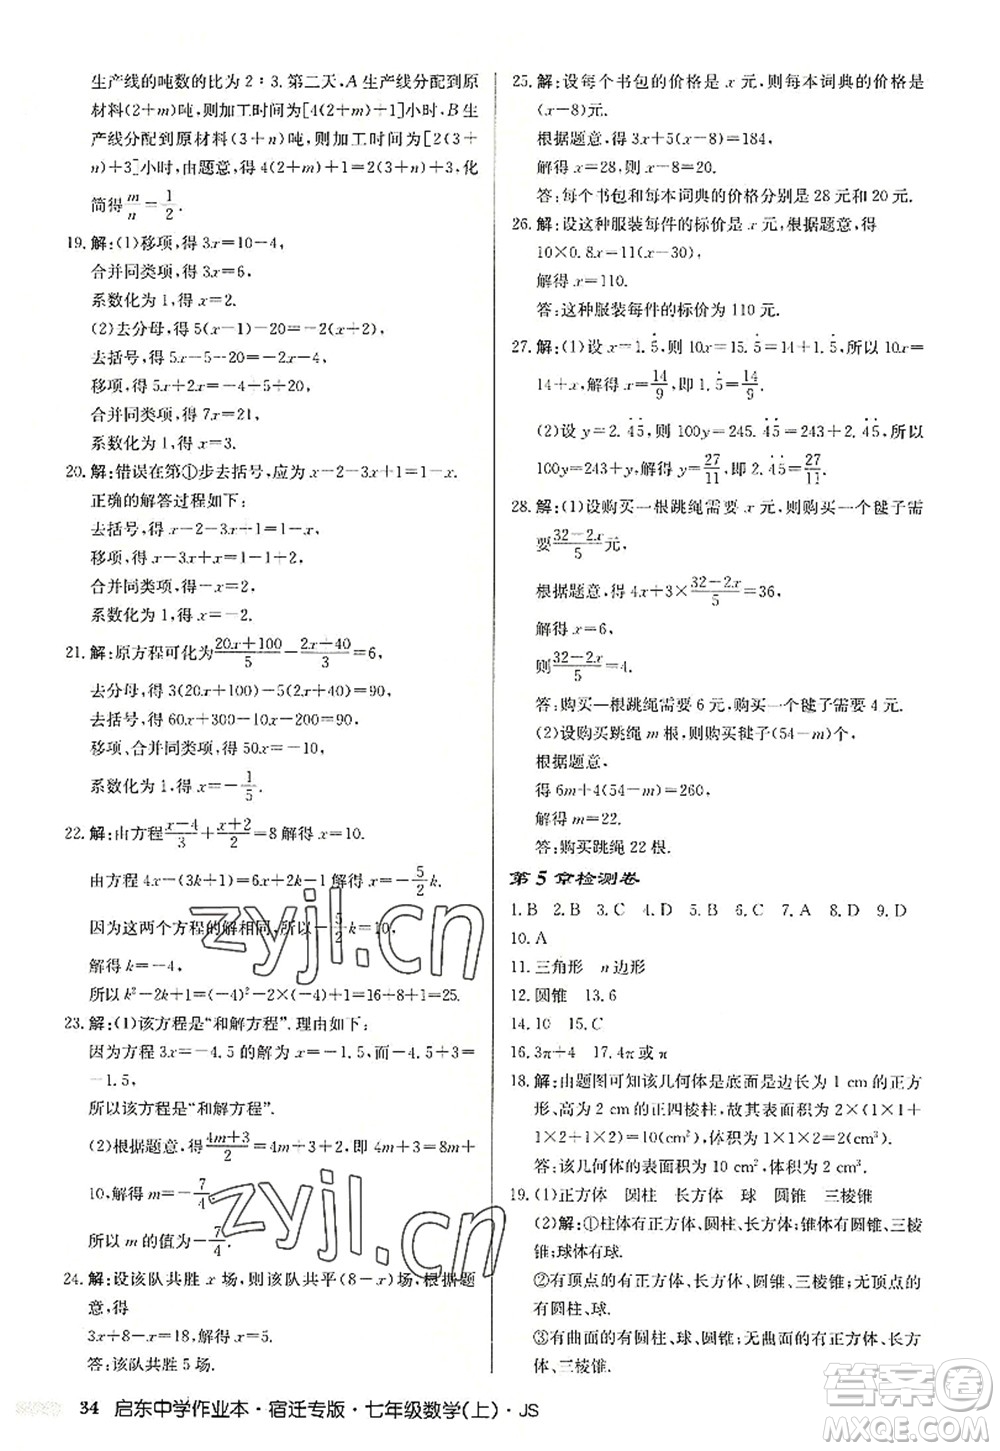 生产线的吨数的比为 2∶3. 第二天, A 生产线分配到原
材料(2+m)吨, 则加工时间为[4(2+m)+1]小时, B 生
产线分配到原材料(3+n)吨, 则加工时间为[2(3+
n)+3]小时, 由题意, 得 4(2+m)+1=2(3+n)+3, 化
简得 m/n = 1/2.
19. 解:(1)移项, 得 3x=10-4,
合并同类项, 得 3x=6,
系数化为 1, 得 x=2.
(2)去分母, 得 5(x-1)-20=-2(x+2),
去括号, 得 5x-5-20=-2x-4,
移项, 得 5x+2x=-4+5+20,
合并同类项, 得 7x=21,
系数化为 1, 得 x=3.
20. 解:错误在第①步去括号, 应为 x-2-3x+1=1-x.
正确的解答过程如下:
去括号, 得 x-2-3x+1=1-x,
移项, 得 x-3x+x=1+2-1,
合并同类项, 得 -x=2,
系数化为 1, 得 x=-2.
21. 解:原方程可化为 (20x+100)/5 - (2x+40)/3 = 6,
去分母, 得 3(20x+100)-5(2x+40)=90,
去括号, 得 60x+300-10x-200=90,
移项、合并同类项, 得 50x=-10,
系数化为 1, 得 x=-1/5.
22. 解:由方程 (x-4)/3 + (x+2)/2 = 8 解得 x=10.
由方程 4x-(3k+1)=6x+2k-1 解得 x=-5/2 k.
因为这两个方程的解相同, 所以-5/2 k=10,
解得 k=-4,
所以 k²-2k+1=(k-1)²=(-4-1)²=25.
23. 解:(1)该方程是“和解方程”. 理由如下:
因为方程 3x=-4.5 的解为 x=-1.5, 而-4.5+3=
-1.5,
所以该方程是“和解方程”.
(2)根据题意, 得 (4m+3)/2 = 4m+3+2, 即 4m+3=8m+
10, 解得 m=-7/4,
所以 m 的值为-7/4.
24. 解:设该队共胜 x 场, 则该队共平(8-x)场, 根据题
意, 得
3x+8-x=18, 解得 x=5.
答:该队共胜 5 场.
25. 解:设每个书包的价格是 x 元, 则每本词典的价格是
(x-8)元.
根据题意, 得 3x+5(x-8)=184,
解得 x=28, 则 x-8=20.
答:每个书包和每本词典的价格分别是 28 元和 20 元.
26. 解:设这种服装每件的标价是 x 元, 根据题意, 得
10×0.8x=11(x-30),
解得 x=110.
答:这种服装每件的标价为 110 元.
27. 解:(1)设 x=1.5̇, 则 10x=15.5̇=14+1.5̇, 所以 10x=
14+x, 解得 x=14/9, 即 1.5̇=14/9.
(2)设 y=2.4̇5̇, 则 100y=245.4̇5̇=243+2.4̇5̇, 所以
100y=243+y, 解得 y=27/11, 即 2.4̇5̇=27/11.
28. 解:(1)设购买一根跳绳需要 x 元, 则购买一个毽子需
要 (32-2x)/5 元,
根据题意, 得 4x+3×(32-2x)/5=36,
解得 x=6,
则 (32-2x)/5=4.
答:购买一根跳绳需要 6 元, 购买一个毽子需要 4 元.
(2)设购买跳绳 m 根, 则购买毽子(54-m)个.
根据题意,
得 6m+4(54-m)=260,
解得 m=22.
答:购买跳绳 22 根.
第 5 章检测卷
1. B 2. B 3. C 4. D 5. B 6. C 7. A 8. D 9. D
10. A
11. 三角形 n 边形
12. 圆锥 13. 6
14. 10 15. C
16. 3π+4 17. 4π 或 π
18. 解:由题图可知该几何体是底面是边长为 1 cm 的正方
形、高为 2 cm 的正四棱柱, 故其表面积为 2×(1×1+
1×2+1×2)=10(cm²).
答:该几何体的表面积为 10 cm².
19. (1)正方体 圆柱 长方体 球 圆锥 三棱锥
(2)解:①柱体有正方体、圆柱、长方体;锥体有圆锥、三棱
锥;球体有球.
②有顶点的有正方体、长方体、圆锥、三棱锥;无顶点的
有圆柱、球.
③有曲面的有圆柱、球、圆锥;无曲面的有正方体、长方
体、三棱锥.
34 启东中学作业本·宿迁专版·七年级数学(上)·JS
zyjl.cn
zyjl.cn
答案圈
MXQE.COM